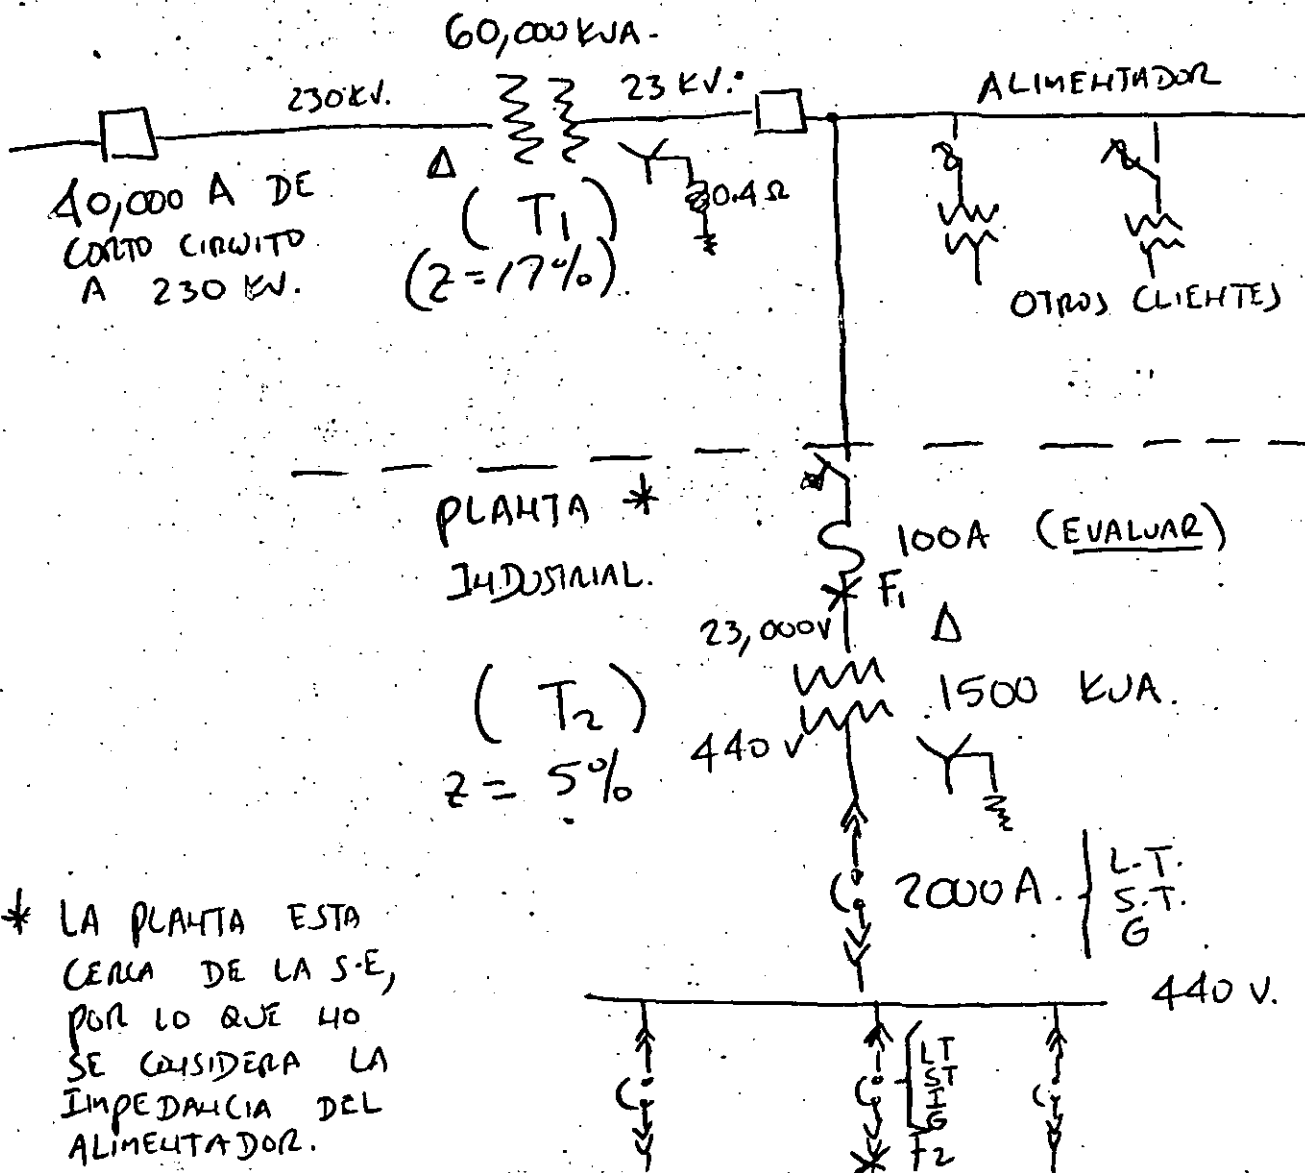 60,000 KVA.
230 KV.
23 KV.
ALIMENTADOR
Δ
0.4 Ω
40,000 A DE
CORTO CIRCUITO
A 230 KV.
( T1 )
(Z = 17%).
OTROS CLIENTES
PLANTA *
INDUSTRIAL.
100A (EVALUAR)
F1
23,000V
Δ
( T2 )
Z = 5%
1500 KVA.
440 V
2000 A.
L.T.
S.T.
G
440 V.
* LA PLANTA ESTA
CERCA DE LA S.E,
POR LO QUE NO
SE CONSIDERA LA
IMPEDANCIA DEL
ALIMENTADOR.
LT
ST
I
G
F2